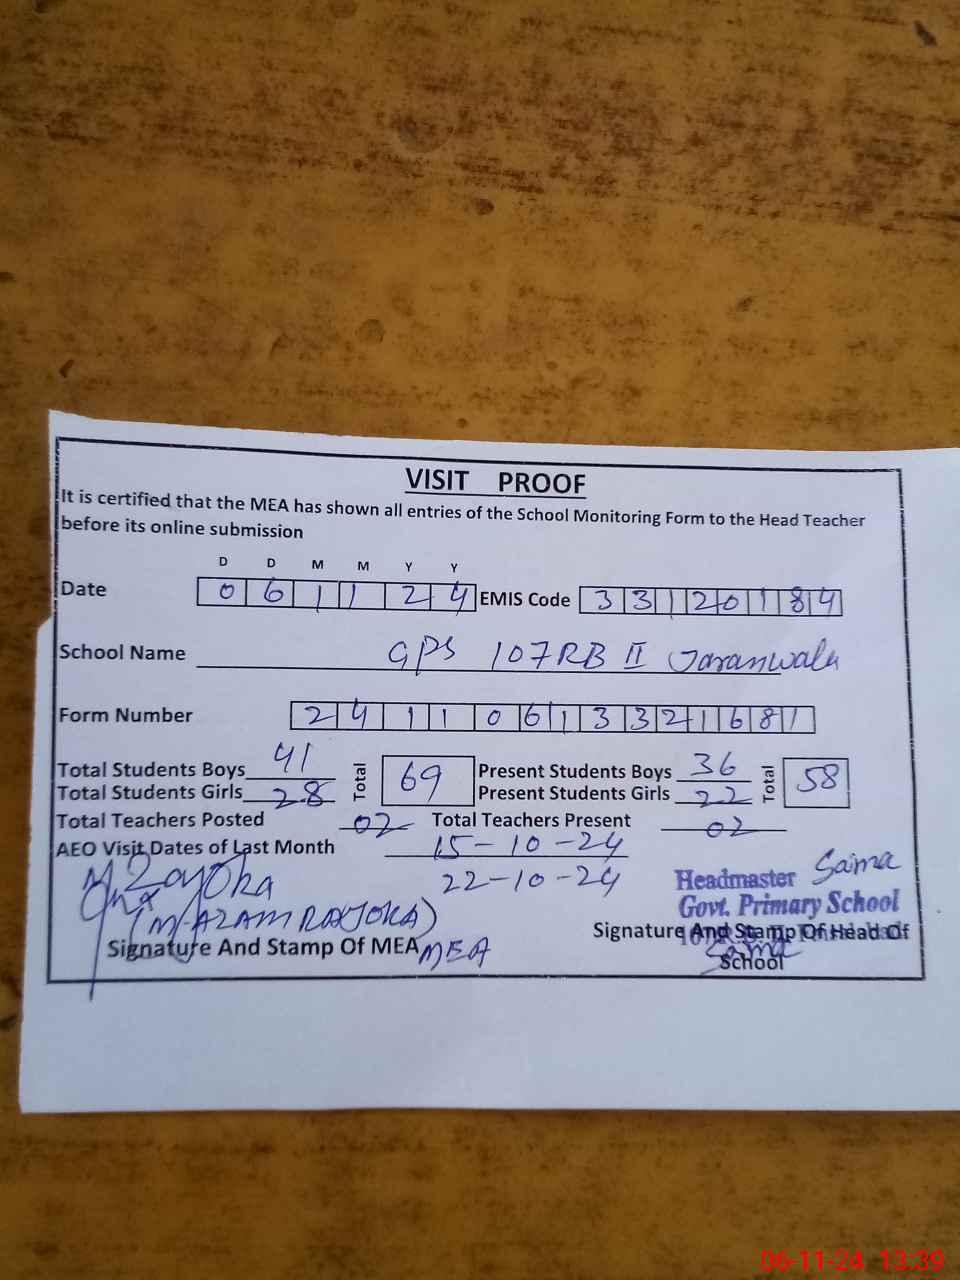 VISIT PROOF
It is certified that the MEA has shown all entries of the School Monitoring Form to the Head Teacher
before its online submission
D D M M Y Y
Date 0 6 1 1 2 4 EMIS Code 3 3 1 2 0 1 8 4
School Name GPS 107RB II Jaranwala
Form Number 2 4 1 1 0 6 1 3 3 2 1 6 8 1
Total Students Boys 41 Total 69 Present Students Boys 36 Total 58
Total Students Girls 28 Present Students Girls 22
Total Teachers Posted 02 Total Teachers Present 02
AEO Visit Dates of Last Month 15-10-24
22-10-24
Headmaster Saima
Govt. Primary School
(M. AZAM RAJOKA)
Signature And Stamp Of MEA MEA
Signature And Stamp Of Head Of
School
06-11-24 13:39